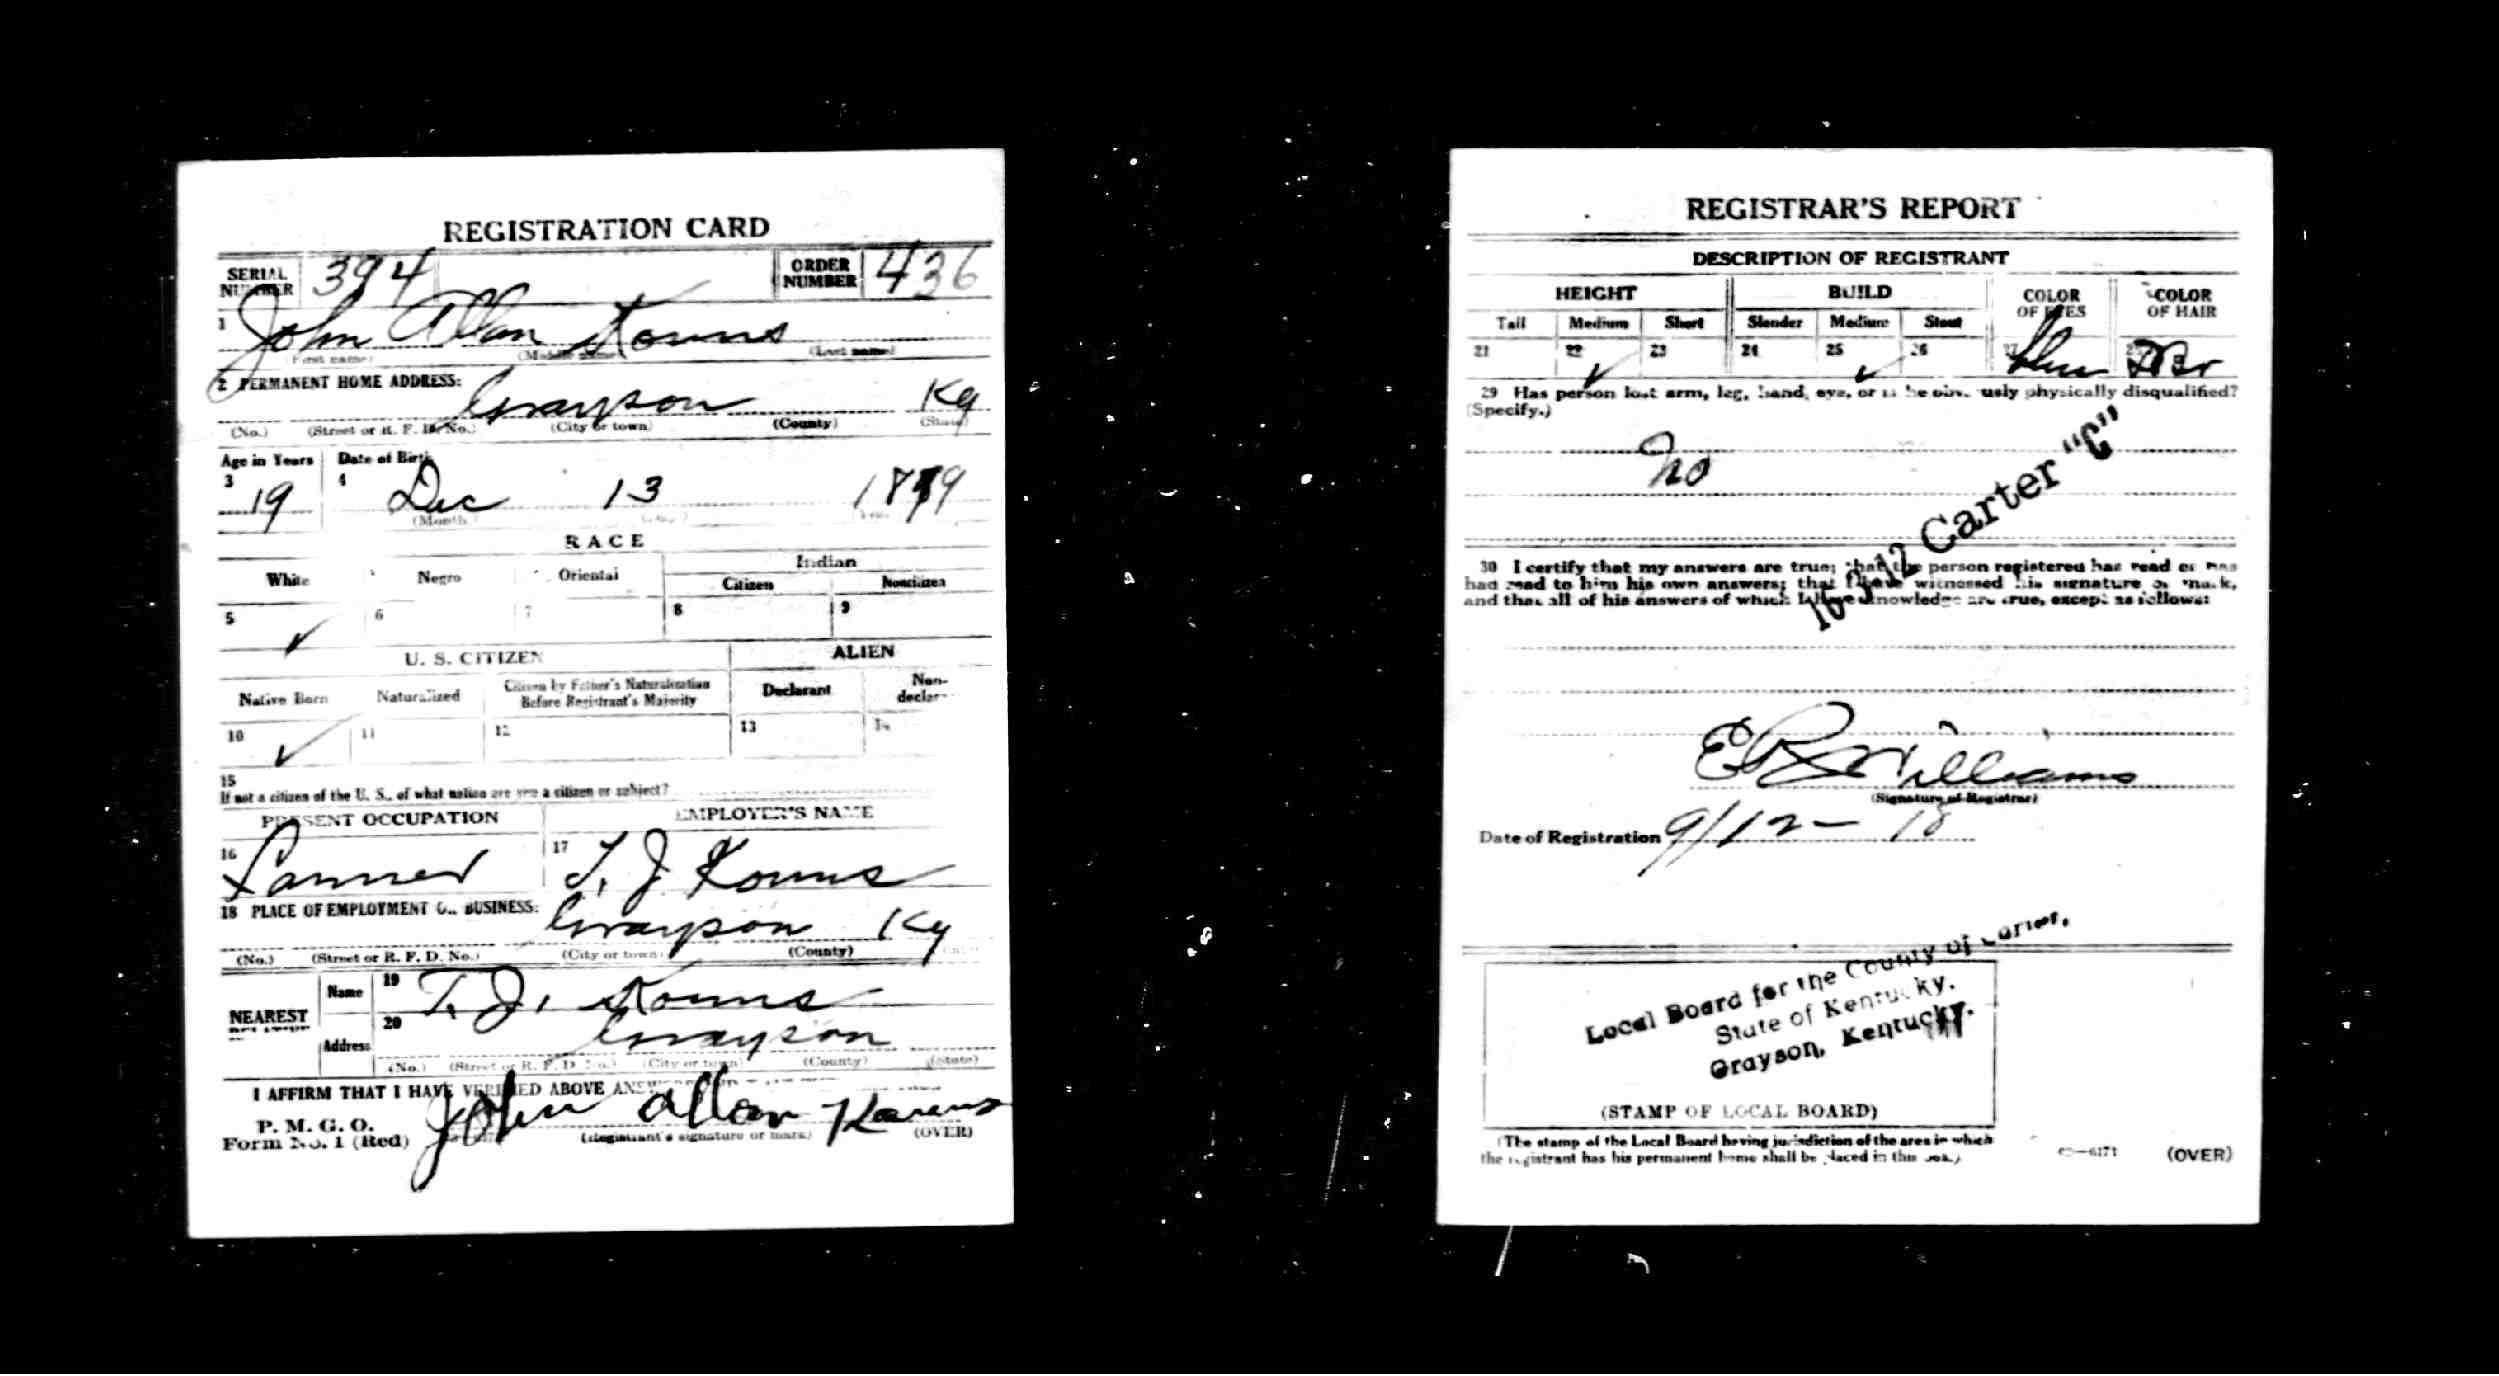 REGISTRATION CARD
SERIAL NUMBER 394 ORDER NUMBER 436
1 John Allan Kouns
(First name) (Middle name) (Last name)
2 PERMANENT HOME ADDRESS:
Grayson Ky
(No.) (Street or R. F. D. No.) (City or town) (County) (State)
Age in Years Date of Birth
3 19 4 Dec 13 1899
(Month)
RACE
White Negro Oriental Indian
Citizen Noncitizen
5 ✓ 6 7 8 9
U. S. CITIZEN ALIEN
Native Born Naturalized Citizen by Father's Naturalization Before Registrant's Majority Declarant Non-declar
10 ✓ 11 12 13 14
15
If not a citizen of the U. S., of what nation are you a citizen or subject?
PRESENT OCCUPATION EMPLOYER'S NAME
16 Farmer 17 T. J. Kouns
18 PLACE OF EMPLOYMENT OR BUSINESS:
Grayson Ky
(No.) (Street or R. F. D. No.) (City or town) (County)
NEAREST RELATIVE
Name 19 T. J. Kouns
Address 20 Grayson
(No.) (Street or R. F. D. No.) (City or town) (County) (State)
I AFFIRM THAT I HAVE VERIFIED ABOVE
P. M. G. O.
Form No. 1 (Red) John Allan Kouns
(Registrant's signature or mark) (OVER)
REGISTRAR'S REPORT
DESCRIPTION OF REGISTRANT
HEIGHT BUILD COLOR OF EYES COLOR OF HAIR
Tall Medium Short Slender Medium Stout
21 22 ✓ 23 24 25 ✓ 26 27 Blue Br
29 Has person lost arm, leg, hand, eye, or is he obviously physically disqualified?
(Specify.)
No
16-3-12 Carter "C"
30 I certify that my answers are true; that the person registered has read or has
had read to him his own answers; that I have witnessed his signature or mark,
and that all of his answers of which I have knowledge are true, except as follows:
E R Williams
(Signature of Registrar)
Date of Registration 9/12-18
Local Board for the County of Carter,
State of Kentucky.
Grayson, Kentucky.
(STAMP OF LOCAL BOARD)
(The stamp of the Local Board having jurisdiction of the area in which
the registrant has his permanent home shall be placed in this box.)
(OVER)